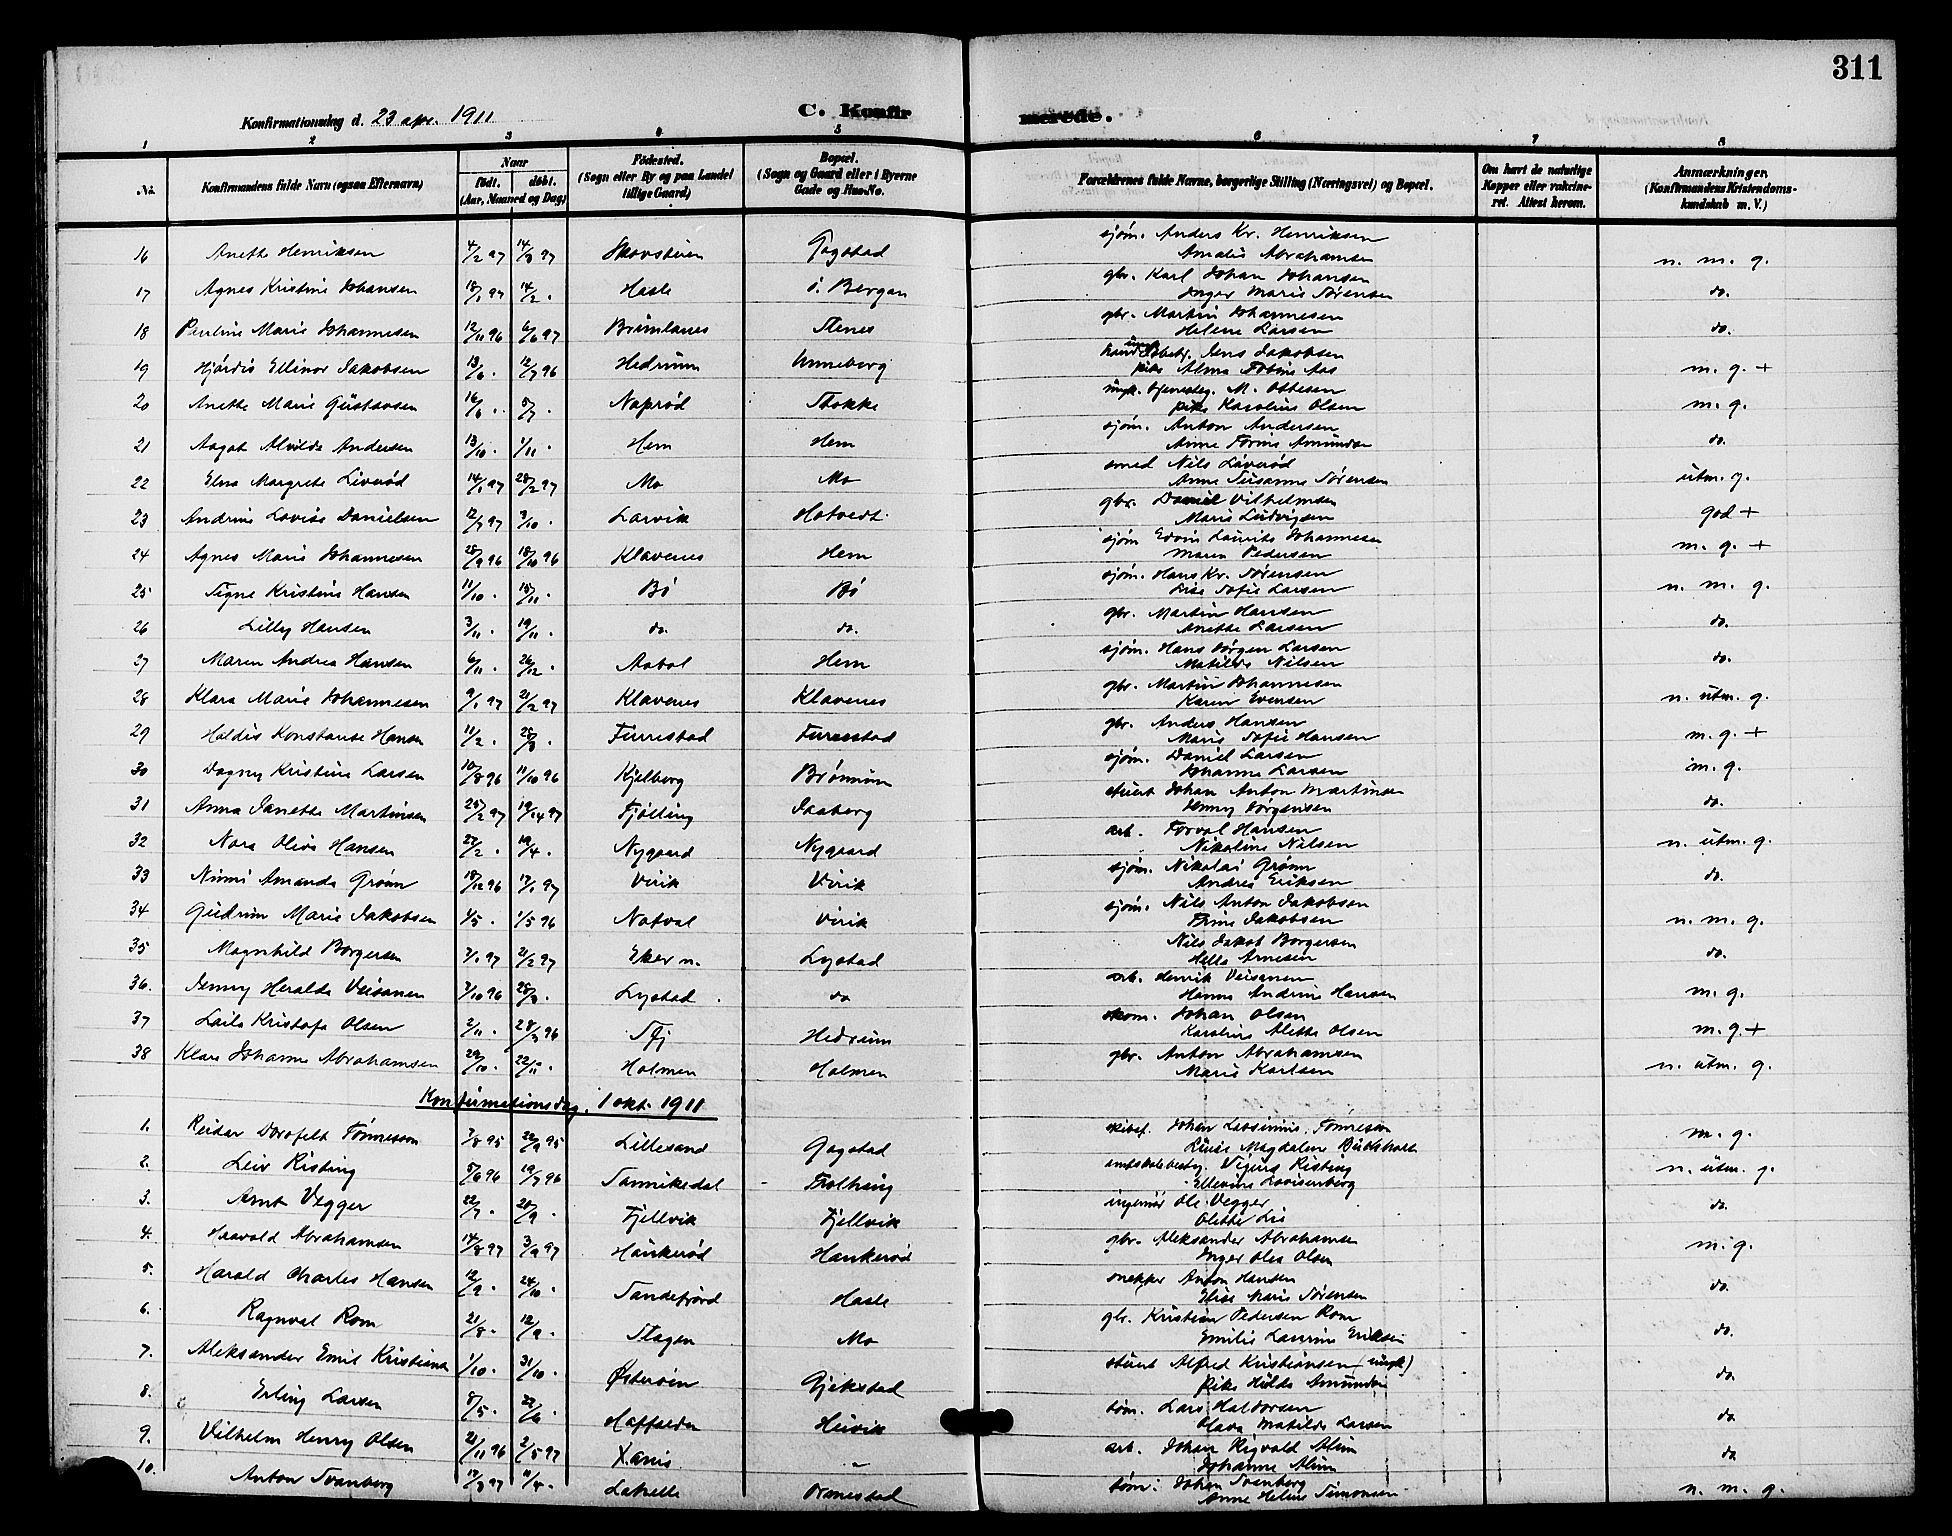 311
Konfirmationsdag d. 23 apr. 1911 C. Konfirmerede.
1 2 3 4 5 6 7 8
No. Konfirmandens fulde Navn (ogsaa Efternavn) Naar født. døbt. (Aar, Maaned og Dag) Fødested. (Sogn eller By og paa Landet tillige Gaard) Bopæl. (Sogn og Gaard eller i Byerne Gade og Hus-No. Forældrenes fulde Navne, borgerlige Stilling (Næringsvei) og Bopæl. Om havt de naturlige Kopper eller vakcineret. Attest herom. Anmærkninger. (Konfirmandens Kristendomskundskab m. V.)
16 Anette Henriksen 4/2 97 14/3 97 Gogstad sjøm. Anders Kr. Henriksen
Amalie Abrahamsen n. m. g.
17 Agnes Kristine Johansen 18/1 97 14/2 . Hasle ø. Bergan gbr. Karl Johan Johansen
Inger Marie Sørensen do.
18 Pauline Marie Johannesen 12/11 96 6/6 97 Brunlanes Stenes gbr. Martin Johannesen
Helene Larsen do.
19 Hjørdis Ellinor Jakobsen 13/6 . 12/7 96 Hedrum Unneberg Jens Jakobsen
pike Alma Tobine Aas m. g. +
20 Anette Marie Gustavsen 16/6 . 5/7 . Naprød Stokke ungk. M. Ottesen
pike Karoline Olsen m. g.
21 Aagot Alvilde Andersen 13/10 . 1/11 . Hem Hem sjøm. Anton Andersen
Anne Torine Amundsen do.
22 Elna Margrete Liverød 14/1 97 28/2 97 Mo Mo smed Nils Liverød
Anne Susanne Sørensen utm. g.
23 Andrine Lovise Danielsen 12/7 97 3/10 . Larvik Hotvedt gbr. Daniel Vilhelmsen
Marie Ludvigsen god +
24 Agnes Marie Johannesen 28/9 96 18/10 96 Klavenes Hem sjøm Edvin Laurits Johannesen
Maren Pedersen m. g. +
25 Signe Kristine Hansen 11/10 . 15/11 . Bø Bø sjøm. Hans Kr. Sørensen
Lise Sofie Larsen n. m. g.
26 Lilly Hansen 3/11 . 19/11 . do. do. gbr. Martin Hansen
Anette Larsen do.
27 Maren Andrea Hansen 6/11 . 26/12 . Hem sjøm. Hans Jørgen Larsen
Matilde Nilsen do.
28 Klara Marie Johannesen 9/1 97 21/2 97 Klavenes Klavenes gbr. Martin Johannesen
Karen Evensen n. utm. g.
29 Haldis Konstanse Hansen 11/2 . 28/3 . Furustad Furustad gbr. Anders Hansen
Marie Sofie Hansen m. g. +
30 Dagny Kristine Larsen 10/8 96 11/10 96 Kjelberg Brønnum sjøm. Daniel Larsen
Johanne Larsen m. g.
31 Anna Janette Martinsen 24/2 97 19/4 97 Tjølling Jaaberg stuert Johan Anton Martinsen
Jenny Jørgensen do.
32 Nora Olivia Hansen 27/2 . 19/4 . Nygaard Nygaard arb. Torval Hansen
Nikoline Nilsen n. utm. g.
33 Nimi Amanda Grønn 18/12 96 17/1 97 Virik Virik sjøm. Nikolai Grønn
Andrea Eriksen do.
34 Gudrun Marie Jakobsen 4/5 . 1/5 96 Natval Virik sjøm. Nils Anton Jakobsen
Trine Jakobsen n. m. g.
35 Magnhild Borgersen 7/1 97 2/2 97 Eker n. Lystad Nils Jakob Borgersen
Helle Arnesen do.
36. Jenny Heralda Veisanen 7/10 96 28/3 . Lystad do arb. Henrik Veisanen
Hanna Andrine Hansen m. g.
37 Laila Kristofa Olsen 2/11 . 28/3 96 Hedrum skom. Johan Olsen
Karoline Alette Olsen m. g. +
38 Klara Johanne Abrahamsen 24/10 . 22/11 . Holmen Holmen gbr. Anton Abrahamsen
Marie Karlsen n. utm. g.
Konfirmationsdag. 1 okt. 1911
1. Reidar Dorofelt Tønnessen 7/8 95 22/9 95 Lillesand Gogstad skibsf. Johan Tønnesen
Louise Magdalene m. g.
2. Leiv Risting 5/6 96 19/7 96 Sannikedal Tolhaug amtskolebesty. Sigurd Risting
Ellevine Lovisenberg n. utm. g.
3. Arnt Vegger 22/7 . 20/9 . Fjellvik Fjellvik ingeniør Ole Vegger
Olette Lie do.
4. Haavald Abrahamsen 14/8 97 3/9 97 Haukerød Haukerød gbr. Aleksander Abrahamsen
Inger Olea Olsen m. g.
5. Harald Charles Hansen 12/9 . 24/10 . Sandefjord Hasle snekker Anton Hansen
Elise Marie Sørensen do.
6. Ragnval Rom 21/8 . 12/9 . Slagen Mo gbr. Kristian Pedersen Rom
Emilie Laurine Eriksen do.
7. Aleksander Emil Kristiansen 1/10 . 31/10 . Østerøen Gjekstad stuert Alfred Kristiansen (ungk)
pike Hilda Amundsen do.
8. Erling Larsen 8/5 . 22/6 . Haffalden Heivik tøm. Lars Haldorsen
Olava Matilde Larsen do.
9. Vilhelm Henry Olsen 21/11 96 2/5 97 Xania " arb. Johan Rigvald Alum
Johanne Alum do
10. Anton Svanberg 17/3 97 11/4 . Lakelle Ormestad tøm: Johan Svanberg
Anne Heline Simonsen n. m. g.